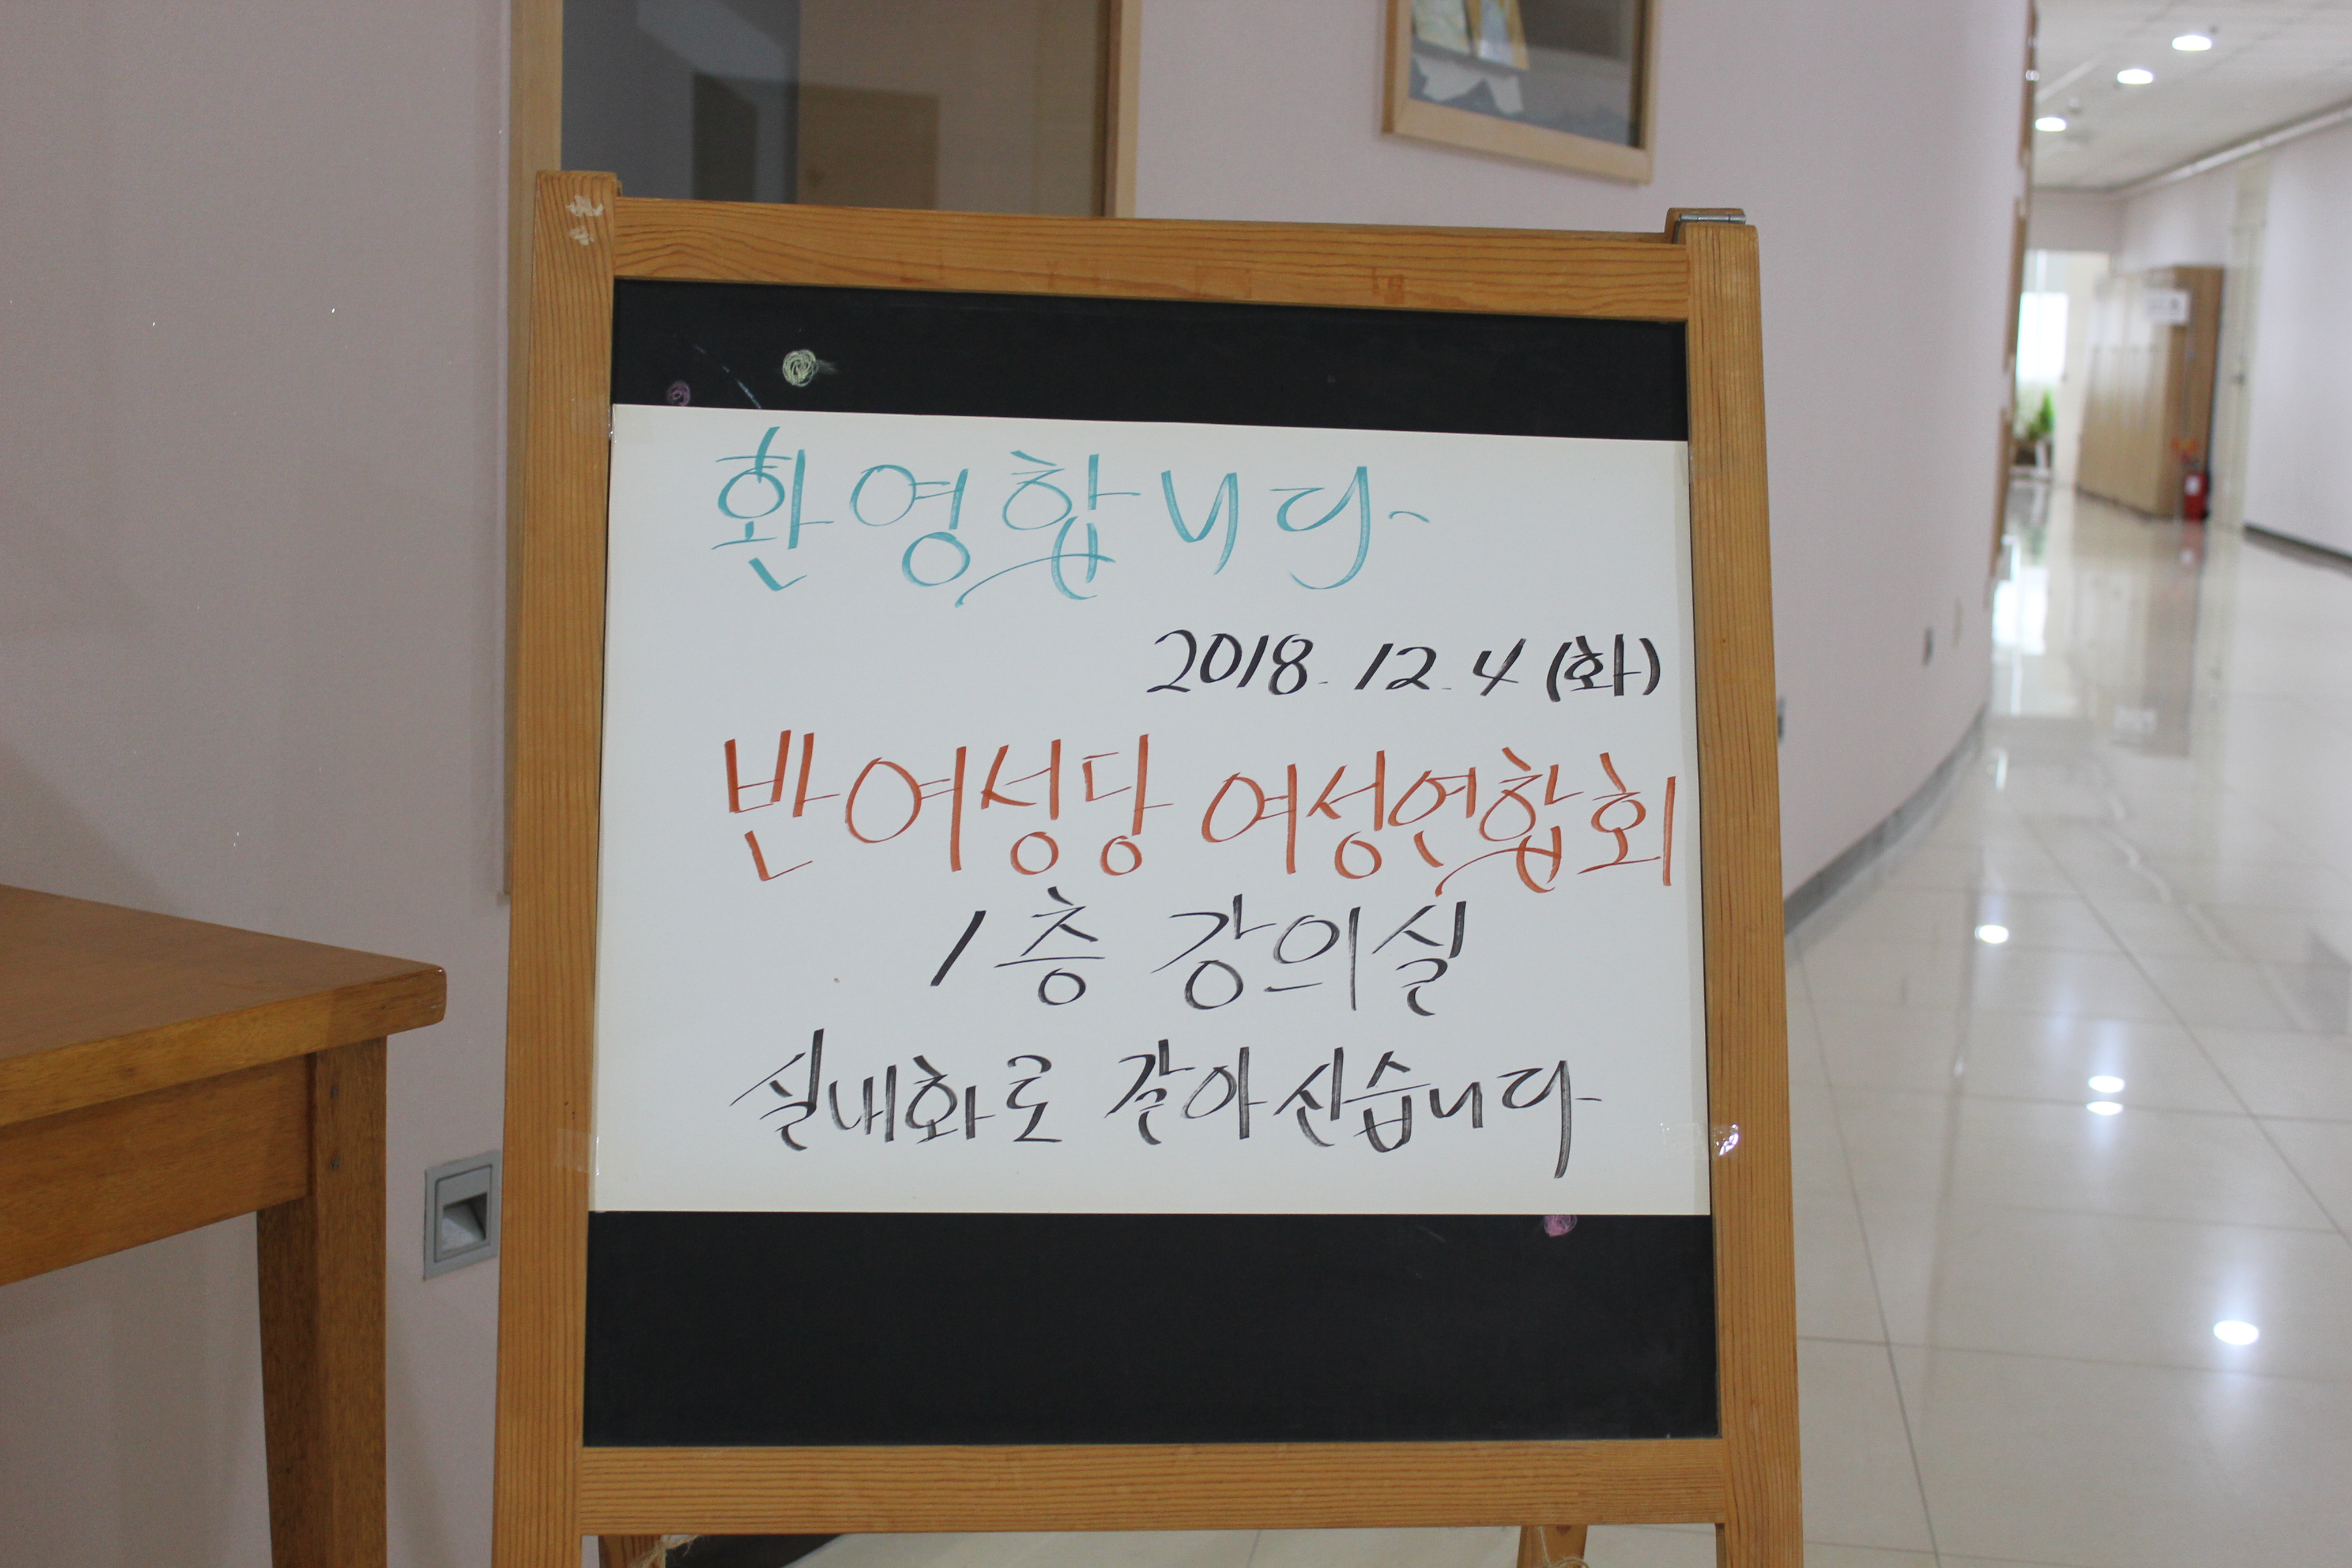 환영합니다~
2018. 12. 4 (화)
반여성당 여성연합회
1층 강의실
실내화로 갈아신습니다